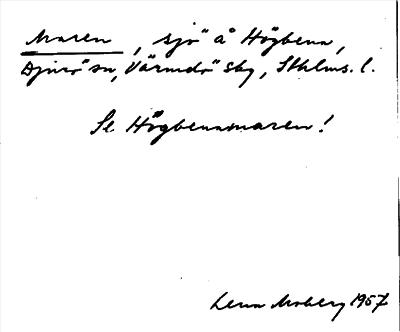 Maren, sjö å Högbena,
Djurö sn, Värmdö sbg, Sthlms. l.
Se Högbenamaren!
Lena Moberg 1957